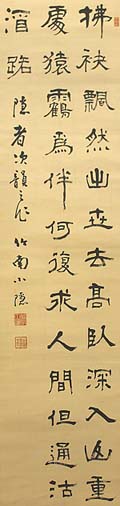 拂袂飄然出世去高臥深入山重
處猿鶴爲伴何復求人間但通沽
酒路
隱者次韻之作 竹南小隱